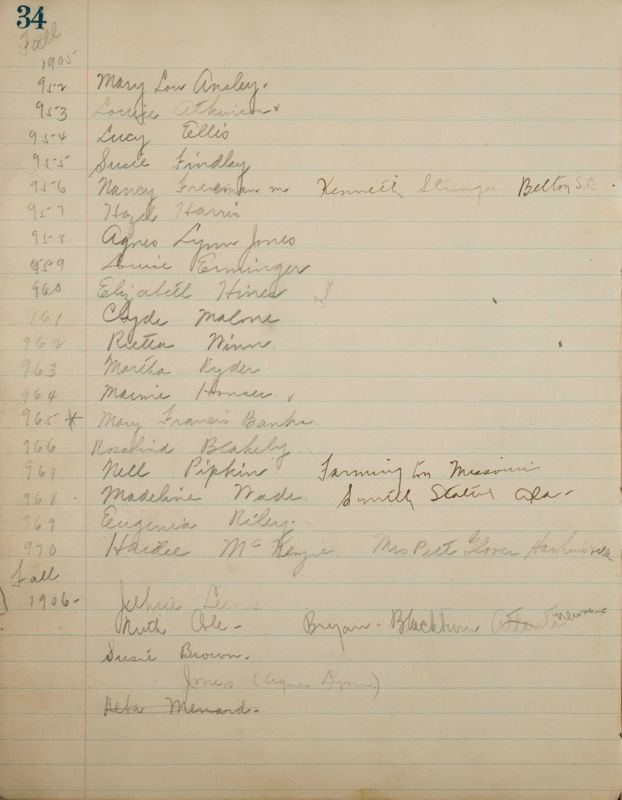 34
Fall
1905
952 Mary Lou Ansley.
953 Louise Atkinson x
954 Lucy Ellis
955 Susie Findlay
956 Nancy Freeman m Kenneth Stringer Belton S.C.
957 Hazel Harris
958 Agnes Lynn Jones
959 Louise Erminger
960 Elizabeth Hines
961 Clyde Malone
962 Rietta Winn
963 Martha Ryder
964 Mamie Houser
965 * Mary Francis Banks
966 Rosalind Blakely
967 Nell Pipkin Farmington Missouri
968 Madeline Wade Smith Station Ala-
969 Eugenia Riley.
970 Haidee McKenzie Mrs Pett Glover Hawkinsville
Fall
1906- Lewis
Ruth Ole- Bryan- Blackburn Atlanta Newnan
Susie Brown.
Jones (Agnes Lynn)
Reta Menard-